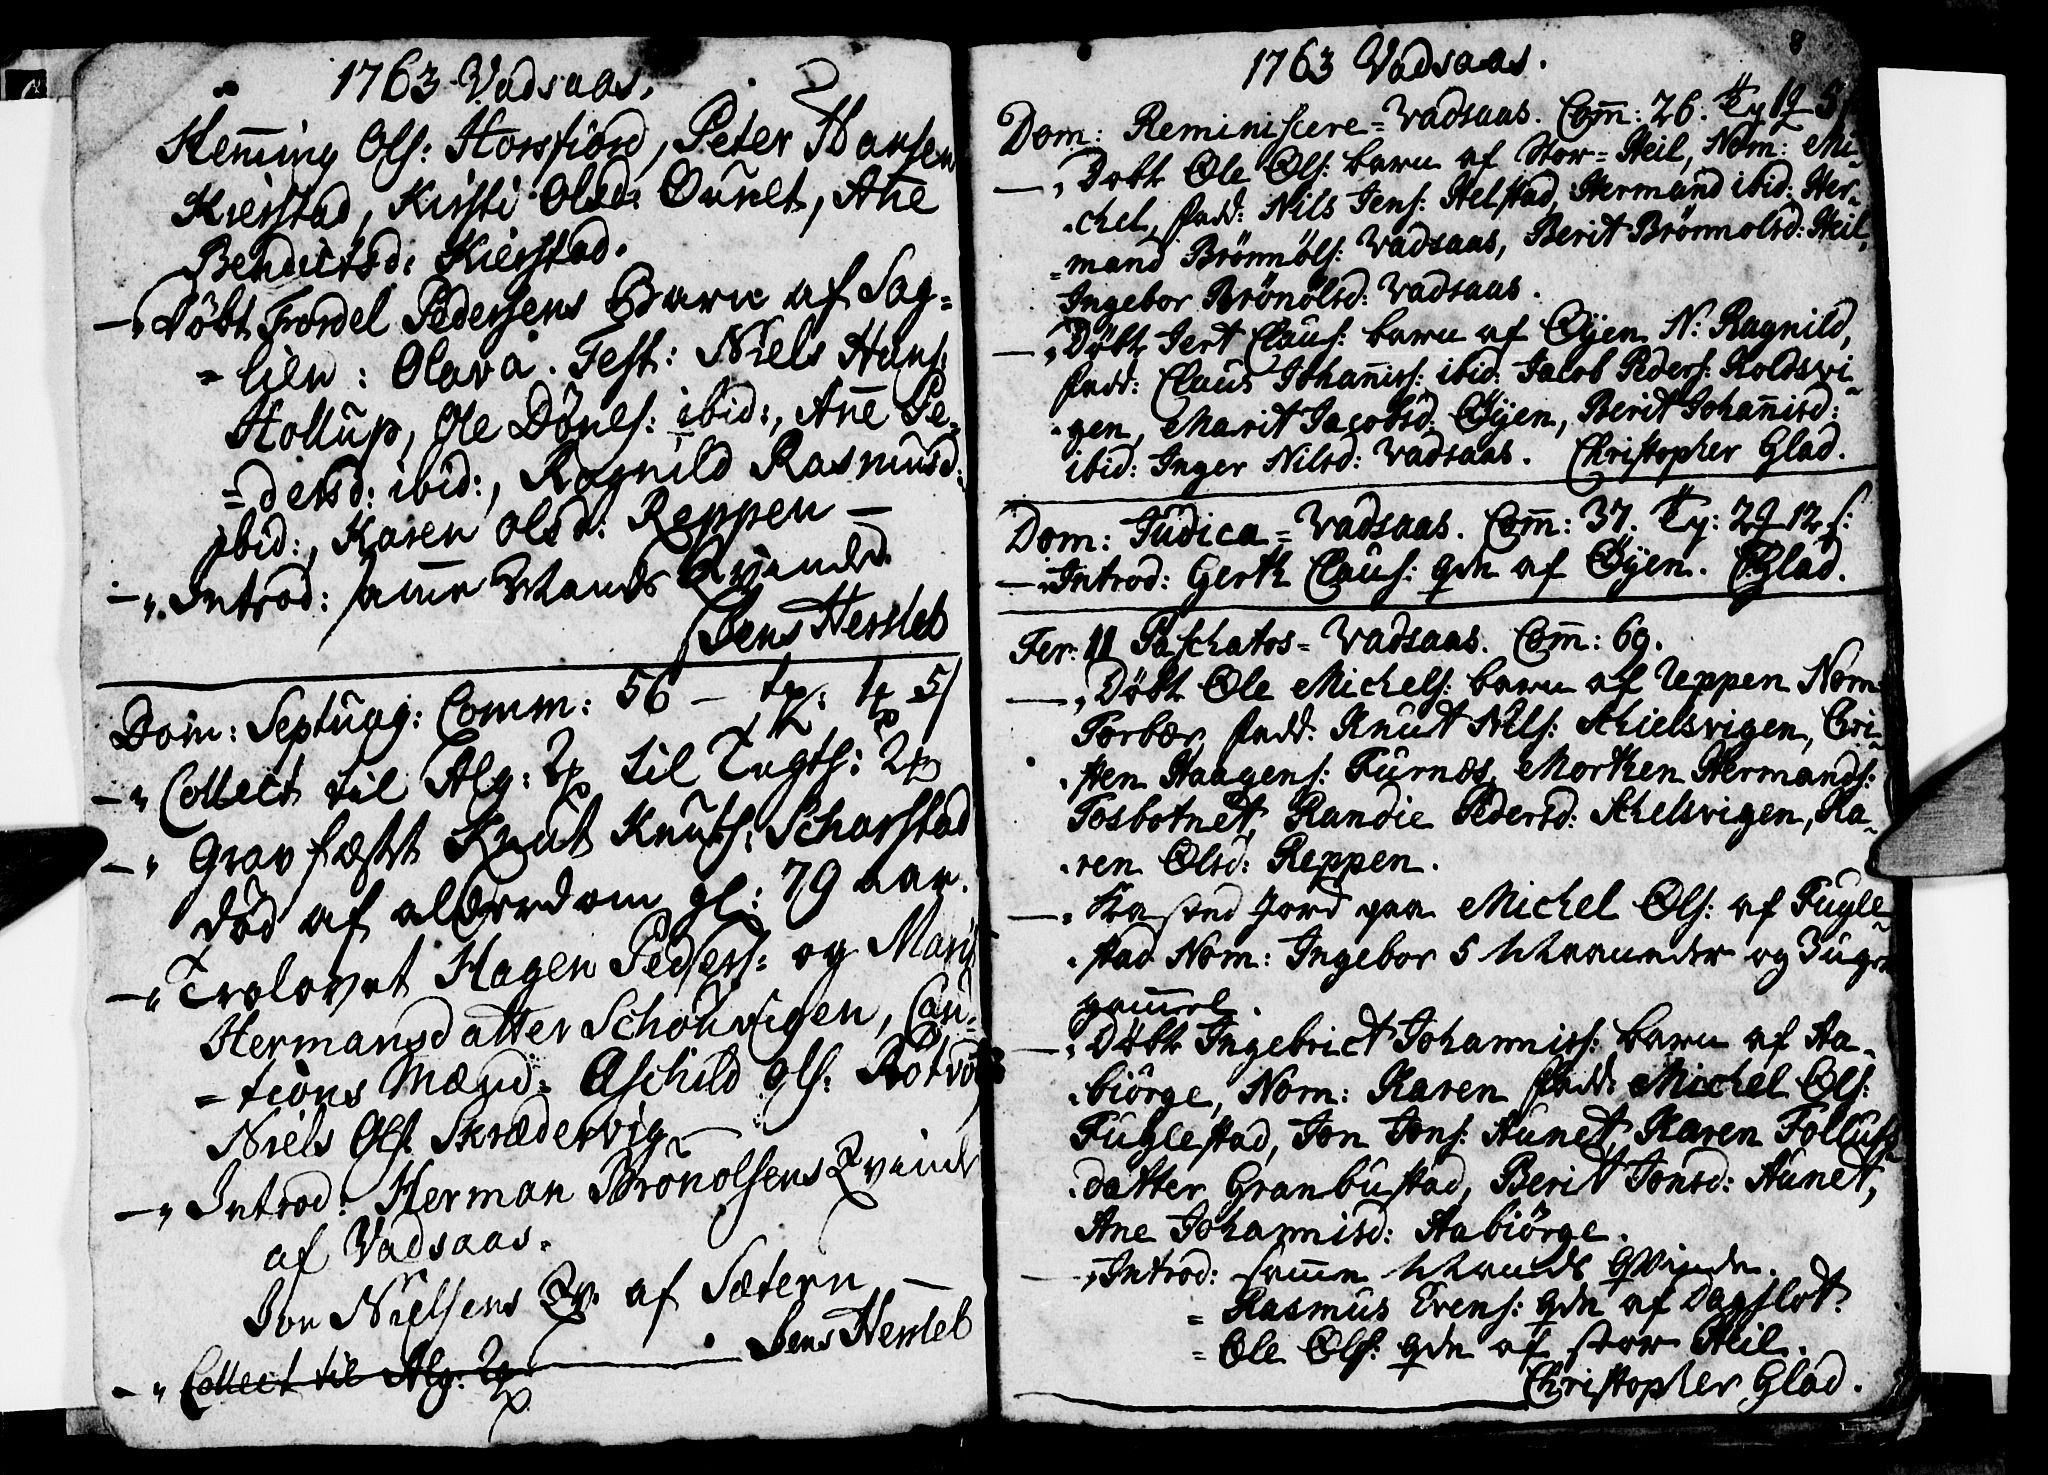 1763 Vadsaas.
Hem̅ing Ols: Horsfiord, Peter Hansen
Kierstad, Kirsti Olsd: Ounet, Ane
Bendictsd: Kierstad.
—„ Döbt Frodel Pedersens Barn af Sag=
=lien: Olava. Test: Niels Hans:
Hollup, Ole Dönels: ibid:, Ane Pe=
=dersd: ibid:, Ragnild Rasmusd:
ibid:, Karen Olsd: Reppen —
—„ Introd: samme Mands Qvinde
Jens Hersleb
Dom: Septuag: Comm: 56 —
—„ Collect til Alg: til Tugts:
—„ Gravfæstet Knut Knuts: Scharstad
död af alderdom gl: 79 aar.
—„ Trolovet Hagen Peders: og Marit
Hermansdatter Schonvigen, Cau=
=tions Mænd: Aschild Ols:
Niels Ols: Skrædervig
—„ Introd: Herman Brönolsens Qvinde
af Vadsaas.
Jon Nielsens Qv. af Sætern —
Jens Hersleb
—„ Collect til Alg:
8
1763 Vadsaas.
Dom: Reminiscere= Vadsaas. Com̅: 26.
—„ Döbt Ole Ols: barn af Stor=Heil, Nom: Mi=
chel, fadd: Nils Jens: Helstad, Hermand ibid: Her=
=mand Brönnöls: Vadsaas, Berit Brönnolsd: Heil,
Ingebor Brönölsd: Vadsaas.
—„ Döbt Jert Claus: barn af Öyen N: Ragnild,
fadd: Claus Johan̅iss: ibid: Jacob Peders: Koldsvi=
gen, Marit Jacobsd: Öyen, Berit Johan̅isd:
ibid: Inger Nilsd: Vadsaas. Christopher Glad.
Dom: Judica= Vadsaas. Com̅: 37.
—„ Introd: Gerth Claus: qvde af Öyen. CGlad.
Fer: II Paschatos= Vadsaas. Com̅: 69.
—„ Döbt Ole Michels: barn af Reppen Nom:
Torber, fadd: Knut Nils: Schielsvigen, Cri=
sten Haagens: Furnæs, Morthen Hermands:
Fosbotnet, Randie Pedersd: Schelsvigen, Ka=
ren Olsd: Reppen.
—„ Kasted Jord paa Michel Ols: af Fugle=
stad Nom: Ingebor 5 Maaneder og
gam̅el.
—„ Döbt Ingebrict Johanniss: barn af Aa=
biörge, Nom: Karen fadd: Michel Ols:
Fuglestad, Jon Jons: Aunet, Karen Follufs
datter Granbustad, Berit Jonsd: Aunet,
Ane Johannisd: Aabiörge.
—„ Introd: samme Mands Qvinde.
= Rasmus Evens: qvde af Dagslot.
= Ole Ols: qvde af stor Heil.
Christopher Glad.